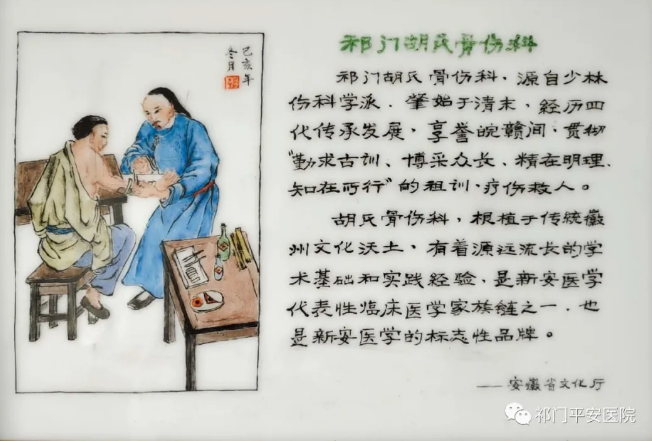 己亥年
冬月
祁门胡氏骨伤科
祁门胡氏骨伤科，源自少林
伤科学派．肇始于清末，经历四
代传承发展，享誉皖赣间，贯彻
“勤求古训、博采众长、精在明理、
知在可行”的祖训，疗伤救人。
胡氏骨伤科，根植于传统徽
州文化沃土，有着源远流长的学
术基础和实践经验，是新安医学
代表性临床医学家族链之一，也
是新安医学的标志性品牌。
——安徽省文化厅
祁门平安医院